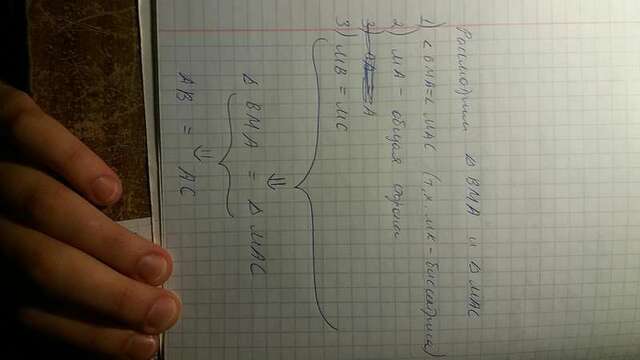 Рассмотрим Δ BMA и Δ MAC
1) ∠ BMA = ∠ MAC (т.к. MK - биссектриса)
2) MA - общая сторона
3) MB = MC
⇓
Δ BMA = Δ MAC
⇓
AB = AC